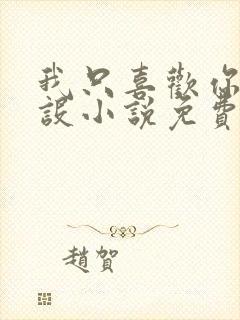 我只喜歡你
設小說免費
趙賀